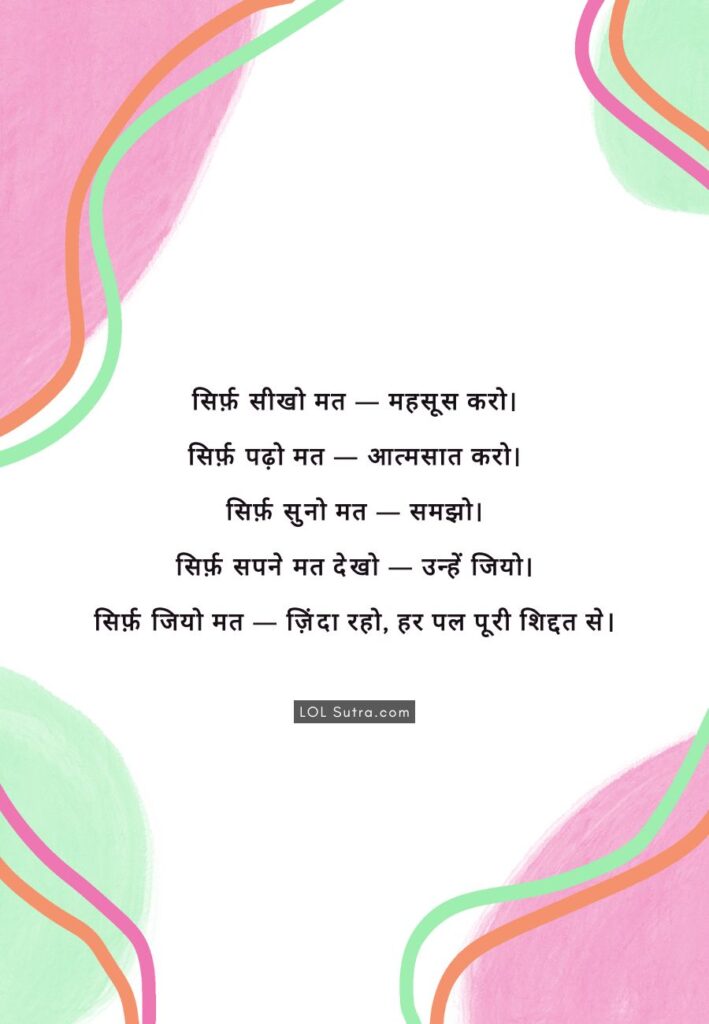 सिर्फ़ सीखो मत — महसूस करो।
सिर्फ़ पढ़ो मत — आत्मसात करो।
सिर्फ़ सुनो मत — समझो।
सिर्फ़ सपने मत देखो — उन्हें जियो।
सिर्फ़ जियो मत — ज़िंदा रहो, हर पल पूरी शिद्दत से।
LOL Sutra.com